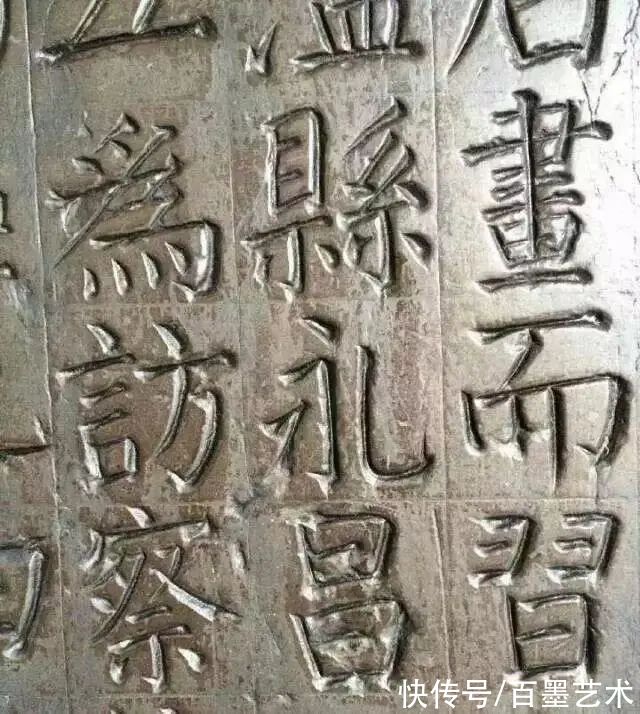 畫而習
縣礼昌
為訪察
快传号/百墨艺术